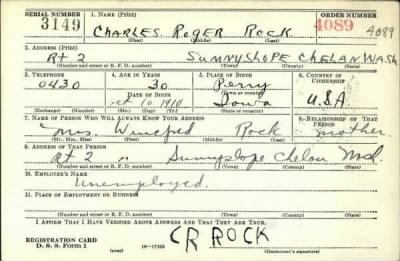 SERIAL NUMBER 1. NAME (Print) ORDER NUMBER
3149 CHARLES ROGER ROCK 4089 4089
(First) (Middle) (Last)
2. ADDRESS (Print)
Rt 2 SUNNYSLOPE CHELAN WASH
(Number and street or R. F. D. number) (Town) (County) (State)
3. TELEPHONE 4. AGE IN YEARS 5. PLACE OF BIRTH 6. COUNTRY OF CITIZENSHIP
0430 30 Perry U.S.A
DATE OF BIRTH (Town or county)
Oct 10 1910 Iowa
(Exchange) (Number) (Mo.) (Day) (Yr.) (State or country)
7. NAME OF PERSON WHO WILL ALWAYS KNOW YOUR ADDRESS 8. RELATIONSHIP OF THAT PERSON
Mrs. Winefred Rock mother
(Mr., Mrs., Miss) (First) (Middle) (Last)
9. ADDRESS OF THAT PERSON
Rt 2 Sunnyslope Chelan
(Number and street or R. F. D. number) (Town) (County) (State)
10. EMPLOYER'S NAME
Unemployed.
11. PLACE OF EMPLOYMENT OR BUSINESS
(Number and street or R. F. D. number) (Town) (County) (State)
I AFFIRM THAT I HAVE VERIFIED ABOVE ANSWERS AND THAT THEY ARE TRUE.
REGISTRATION CARD CR ROCK
D. S. S. Form 1 (over) 16—17105 (Registrant's signature)